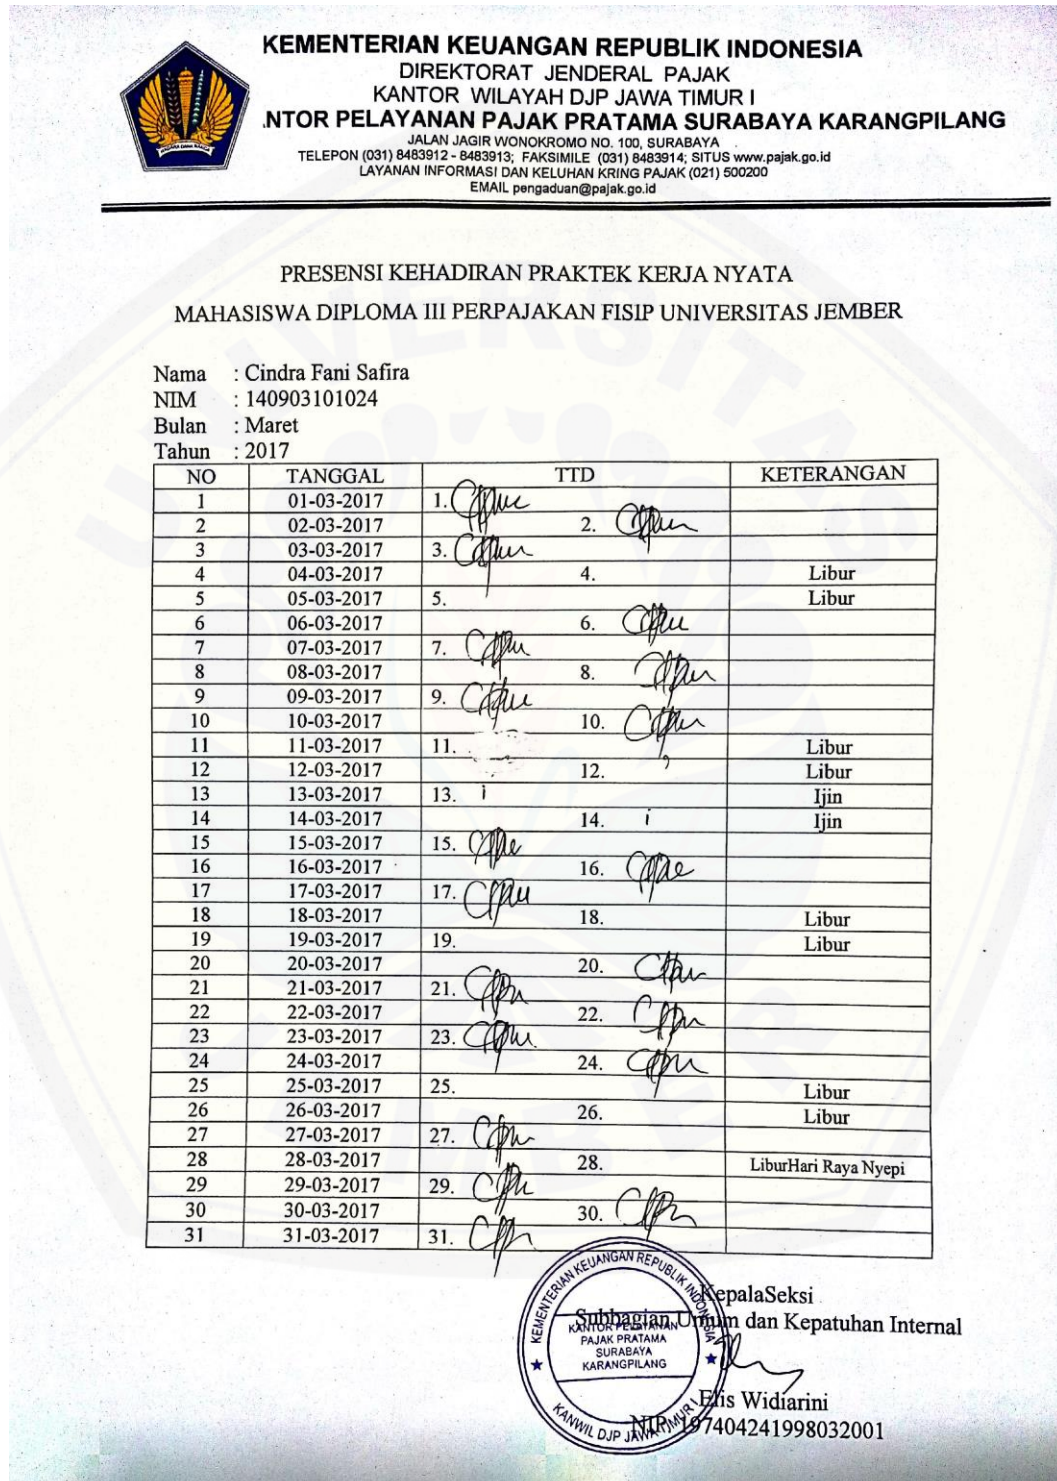 KEMENTERIAN KEUANGAN REPUBLIK INDONESIA
DIREKTORAT JENDERAL PAJAK
KANTOR WILAYAH DJP JAWA TIMUR I
NTOR PELAYANAN PAJAK PRATAMA SURABAYA KARANGPILANG
JALAN JAGIR WONOKROMO NO. 100, SURABAYA
TELEPON (031) 8483912 - 8483913; FAKSIMILE (031) 8483914; SITUS www.pajak.go.id
LAYANAN INFORMASI DAN KELUHAN KRING PAJAK (021) 500200
EMAIL pengaduan@pajak.go.id
PRESENSI KEHADIRAN PRAKTEK KERJA NYATA
MAHASISWA DIPLOMA III PERPAJAKAN FISIP UNIVERSITAS JEMBER
Nama : Cindra Fani Safira
NIM : 140903101024
Bulan : Maret
Tahun : 2017
NO TANGGAL TTD KETERANGAN
1 01-03-2017 1.
2 02-03-2017 2.
3 03-03-2017 3.
4 04-03-2017 4. Libur
5 05-03-2017 5. Libur
6 06-03-2017 6.
7 07-03-2017 7.
8 08-03-2017 8.
9 09-03-2017 9.
10 10-03-2017 10.
11 11-03-2017 11. Libur
12 12-03-2017 12. Libur
13 13-03-2017 13. i Ijin
14 14-03-2017 14. i Ijin
15 15-03-2017 15.
16 16-03-2017 16.
17 17-03-2017 17.
18 18-03-2017 18. Libur
19 19-03-2017 19. Libur
20 20-03-2017 20.
21 21-03-2017 21.
22 22-03-2017 22.
23 23-03-2017 23.
24 24-03-2017 24.
25 25-03-2017 25. Libur
26 26-03-2017 26. Libur
27 27-03-2017 27.
28 28-03-2017 28. LiburHari Raya Nyepi
29 29-03-2017 29.
30 30-03-2017 30.
31 31-03-2017 31.
KepalaSeksi
Subbagian Umum dan Kepatuhan Internal
KEMENTERIAN KEUANGAN REPUBLIK INDONESIA
KANTOR PELAYANAN
PAJAK PRATAMA
SURABAYA
KARANGPILANG
KANWIL DJP JAWA TIMUR I
Elis Widiarini
NIP. 197404241998032001
UNIVERSITAS
JEMBER